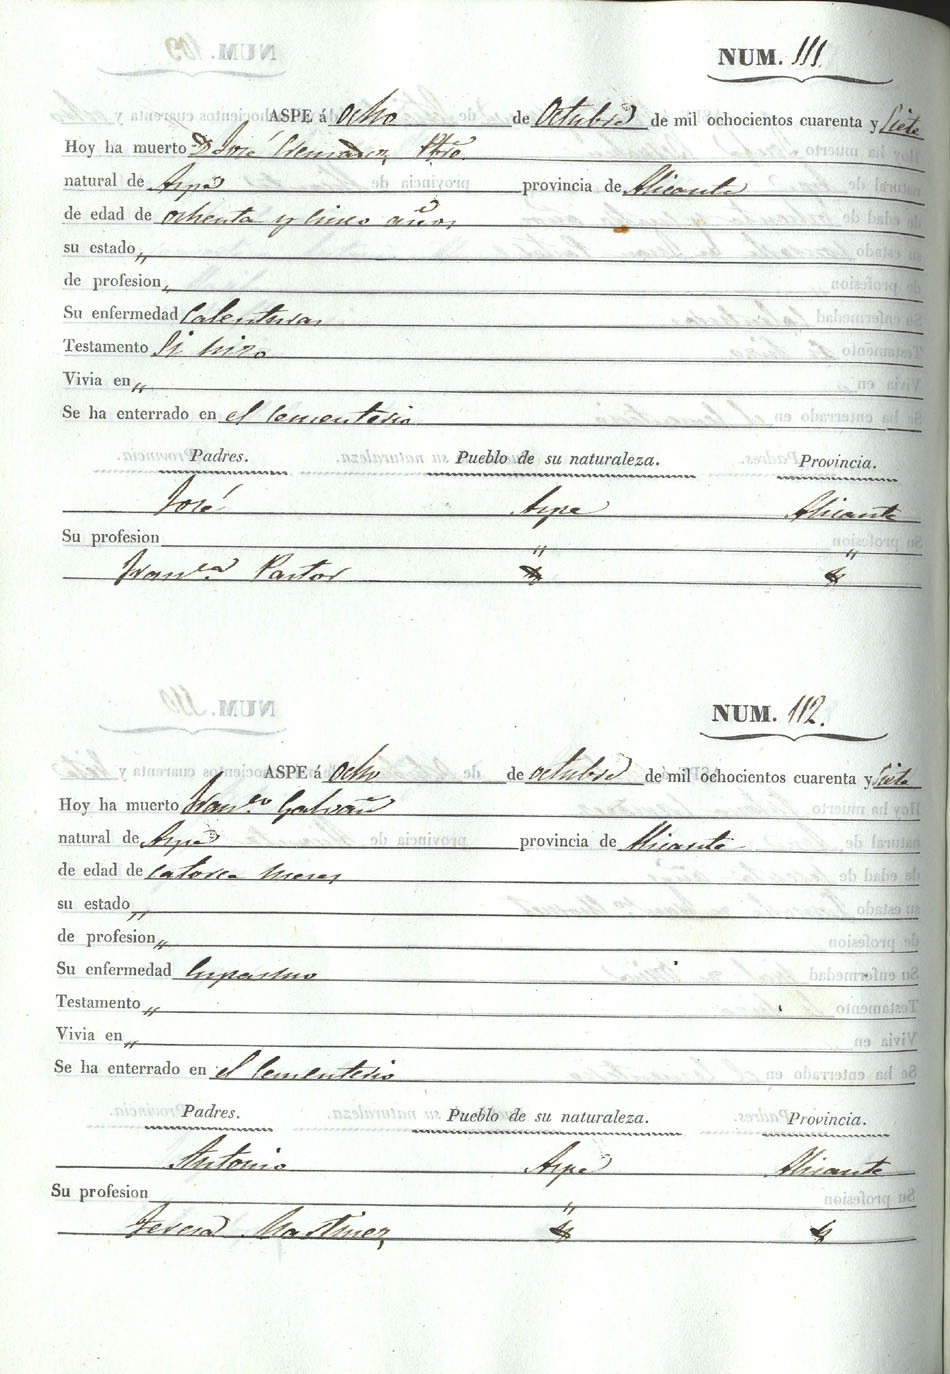 NUM. 111
ASPE á ocho de Octubre de mil ochocientos cuarenta y Siete
Hoy ha muerto D. José Pbro.
natural de Aspe provincia de Alicante
de edad de ochenta y cinco años
su estado „
de profesion „
Su enfermedad Calenturas
Testamento Si hizo
Vivia en „
Se ha enterrado en el Cementerio
Padres. Pueblo de su naturaleza. Provincia.
José Aspe Alicante
Su profesion „ „
Franca Pastor
NUM. 112.
ASPE á ocho de octubre de mil ochocientos cuarenta y Siete
Hoy ha muerto Franco Galvañ
natural de Aspe provincia de Alicante
de edad de catorce meses
su estado „
de profesion „
Su enfermedad Espasmo
Testamento „
Vivia en „
Se ha enterrado en el Cementerio
Padres. Pueblo de su naturaleza. Provincia.
Antonio Aspe Alicante
Su profesion „
Teresa Martinez